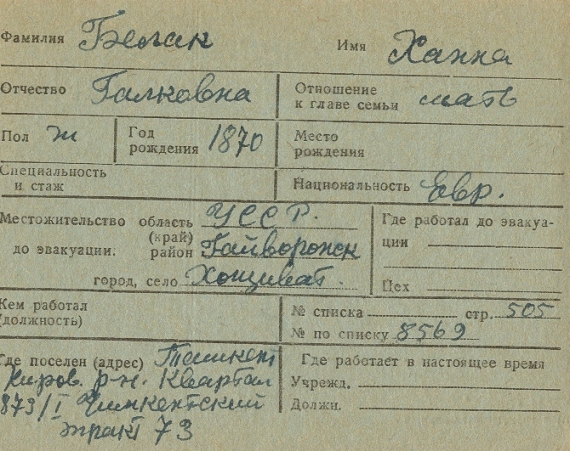 Фамилия Беган Имя Ханна
Отчество Галковна Отношение к главе семьи мать
Пол ж Год рождения 1870 Место рождения
Специальность и стаж Национальность Евр.
Местожительство до эвакуации: область (край) УССР. Где работал до эвакуации
район Гайворонск
город, село Хощиват. Цех
Кем работал (должность) № списка стр. 505
№ по списку 8569
Где поселен (адрес) Ташкент Где работает в настоящее время
Киров. р-н. Квартал Учрежд.
873/I Чимкентский Должн.
тракт 73